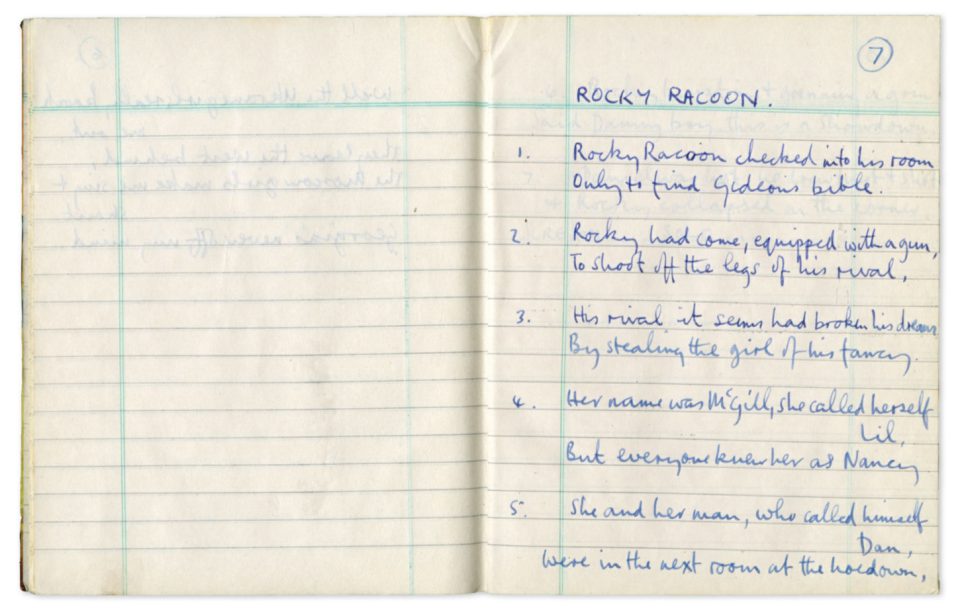 7
ROCKY RACOON.
1. Rocky Racoon checked into his room
Only to find Gideons bible.
2. Rocky had come, equipped with a gun,
To shoot off the legs of his rival,
3. His rival it seems had broken his dreams
By stealing the girl of his fancy.
4. Her name was McGill, she called herself
Lil,
But everyone knew her as Nancy
5. She and her man, who called himself
Dan,
were in the next room at the hoedown,